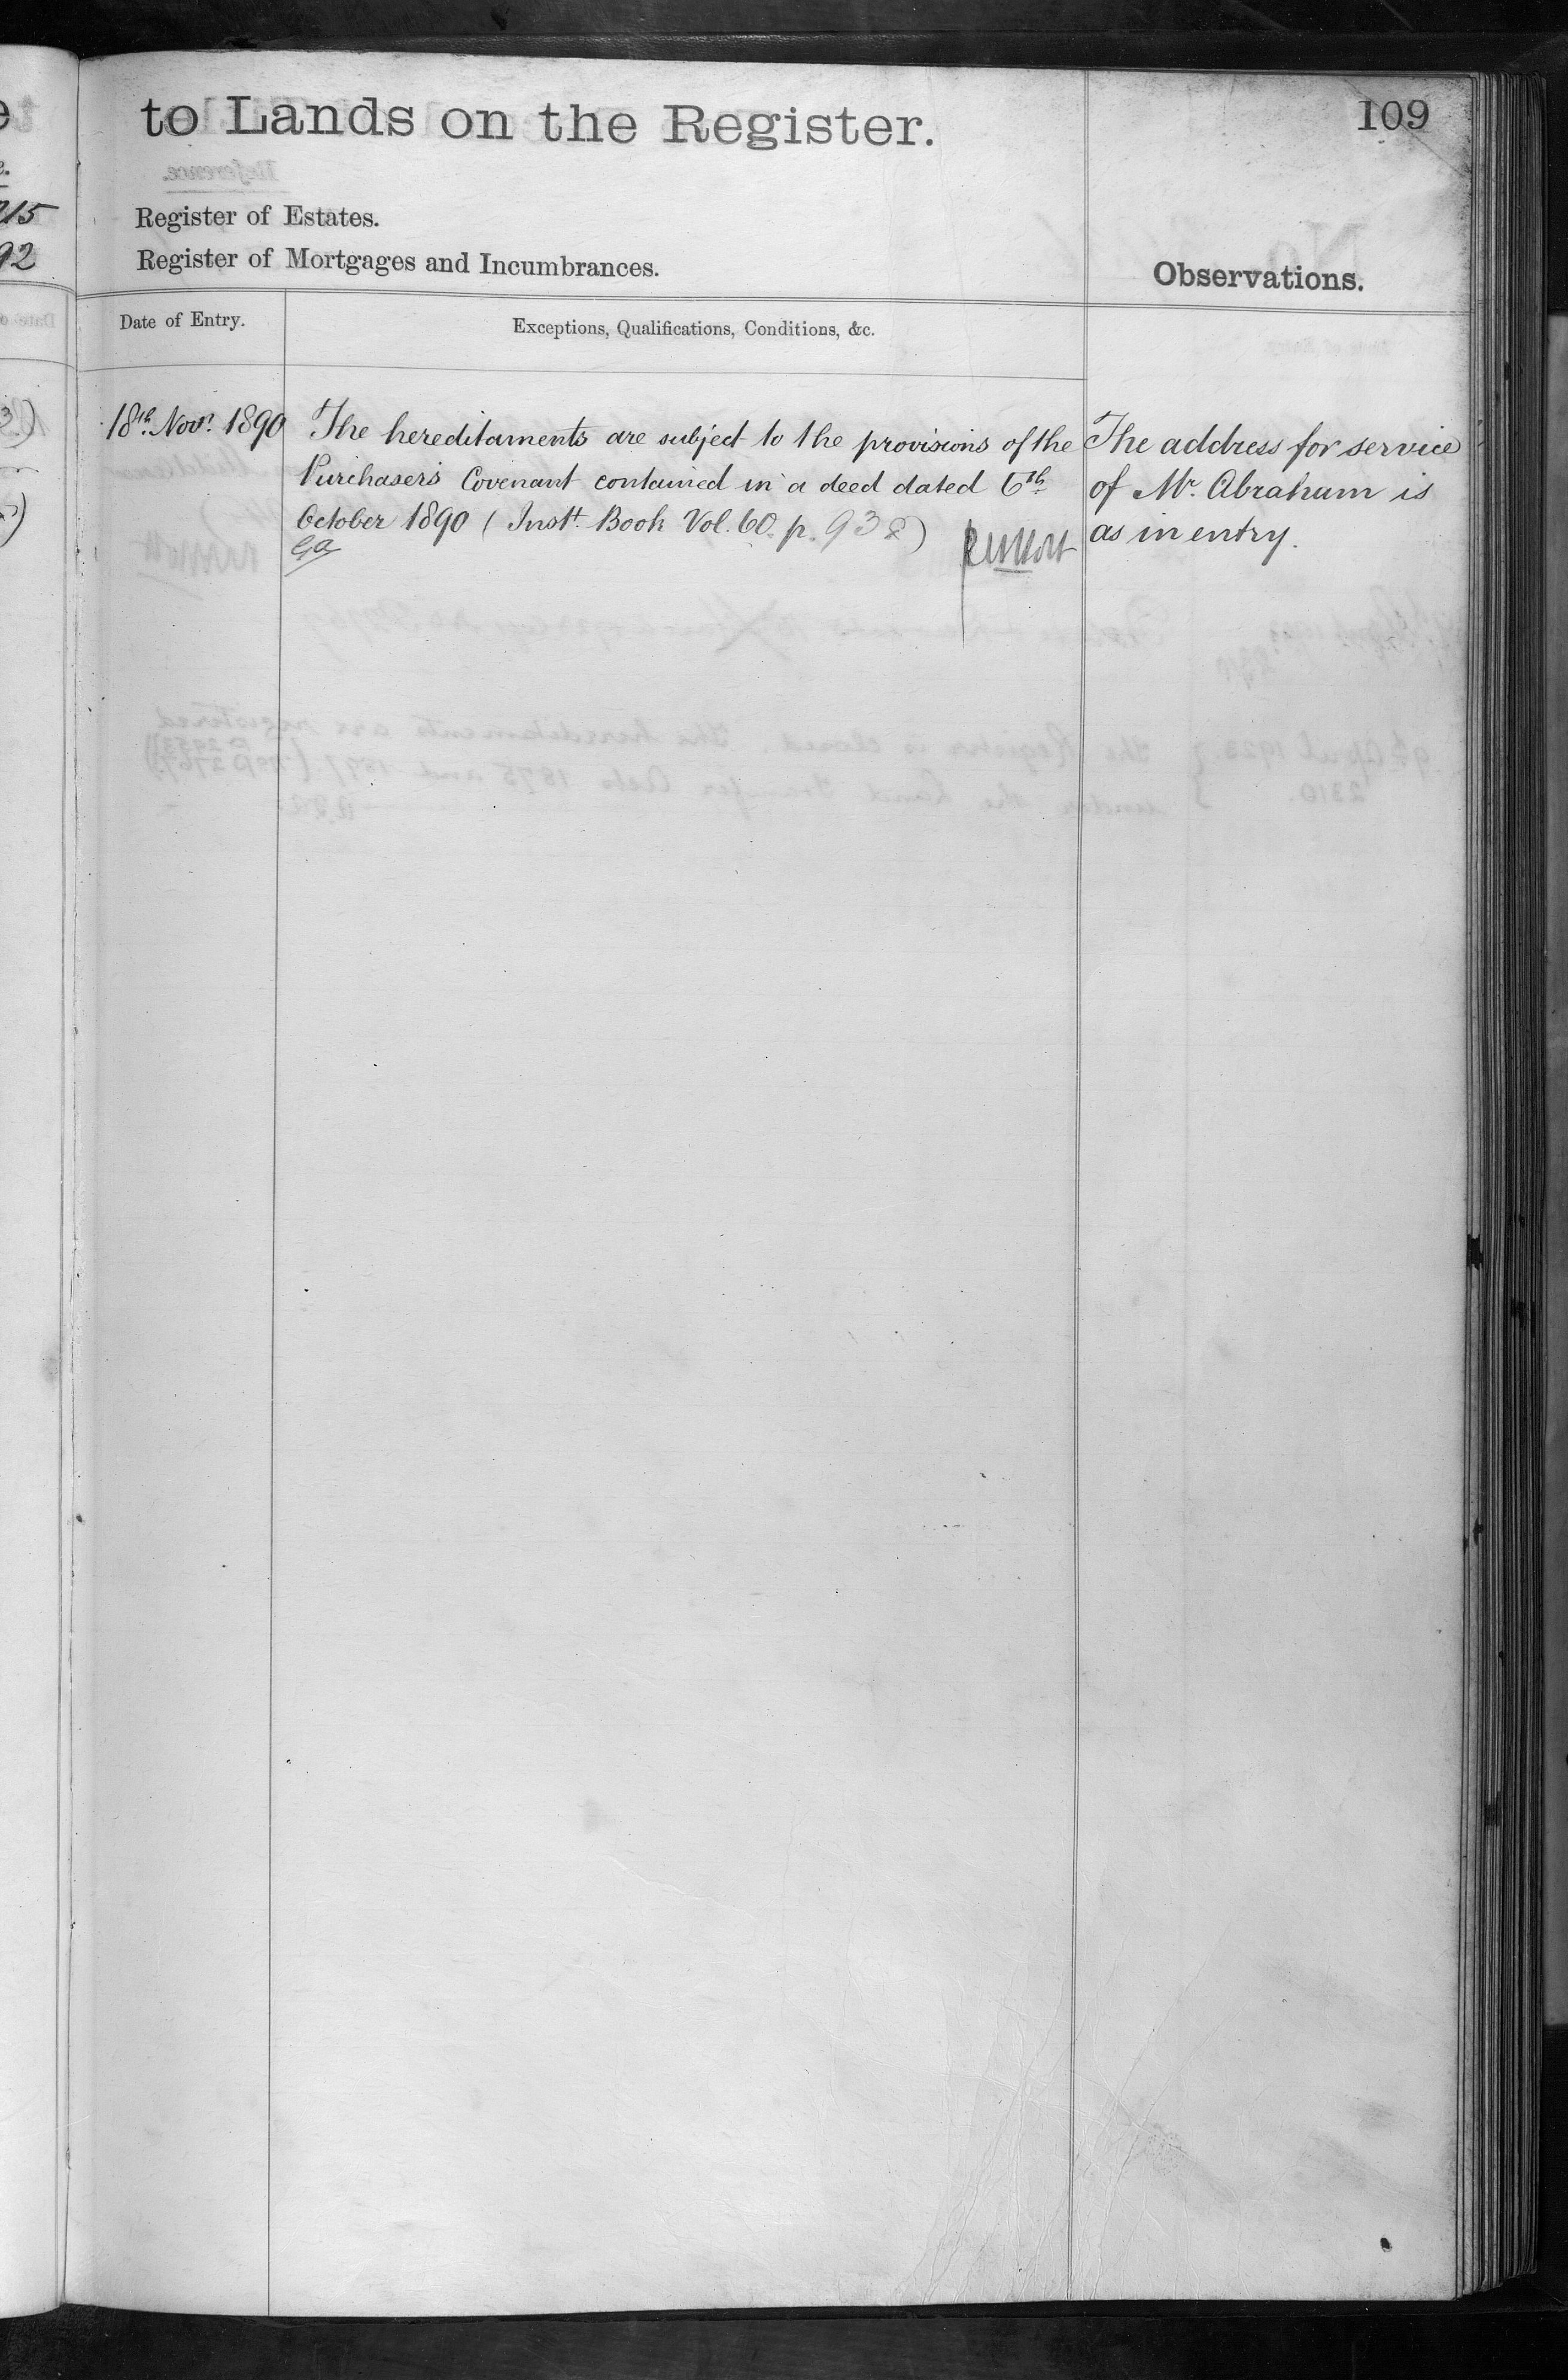 to Lands on the Register.
109
Register of Estates.
Register of Mortgages and Incumbrances.
Observations.
Date of Entry.
Exceptions, Qualifications, Conditions, &c.
18th Novr. 1890
The hereditaments are subject to the provisions of the
Purchaser's Covenant contained in a deed dated 6th
October 1890 (Instt. Book Vol. 60. p. 938)
The address for service
of Mr. Abraham is
as in entry.
215
92